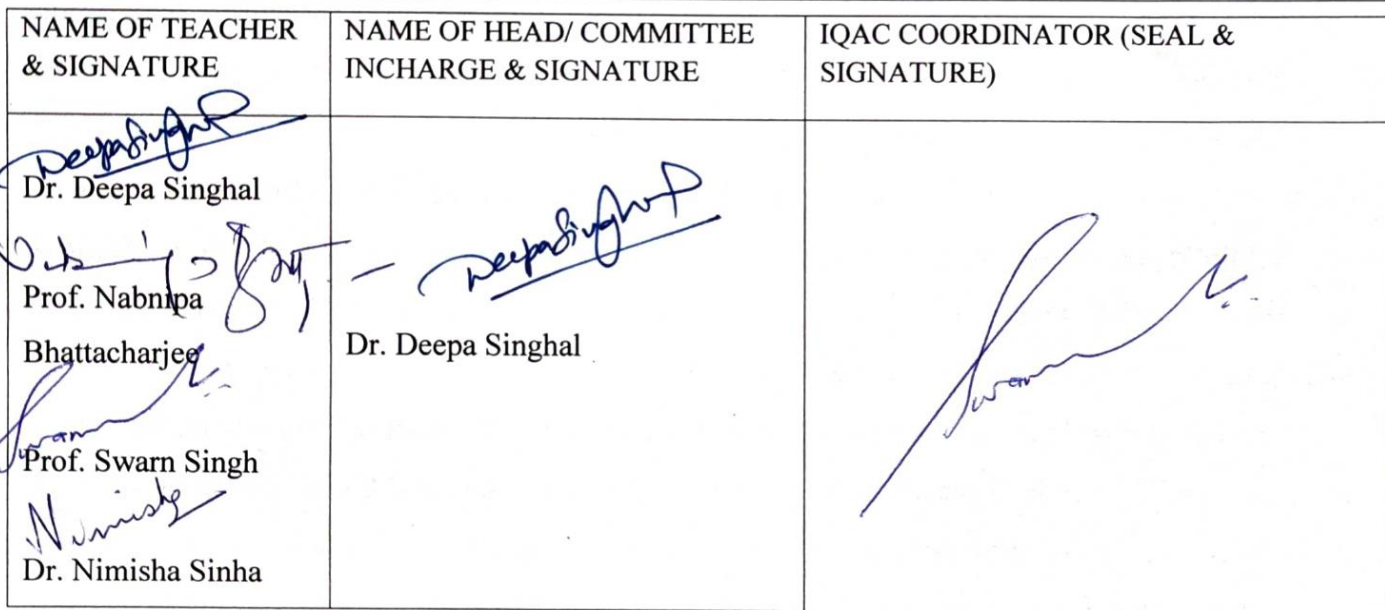 NAME OF TEACHER
& SIGNATURE
NAME OF HEAD/ COMMITTEE
INCHARGE & SIGNATURE
IQAC COORDINATOR (SEAL &
SIGNATURE)
DeepaSinghal
Dr. Deepa Singhal
Prof. Nabnipa
Bhattacharjee
Swarn
Prof. Swarn Singh
Nimisha
Dr. Nimisha Sinha
DeepaSinghal
Dr. Deepa Singhal
Swarn